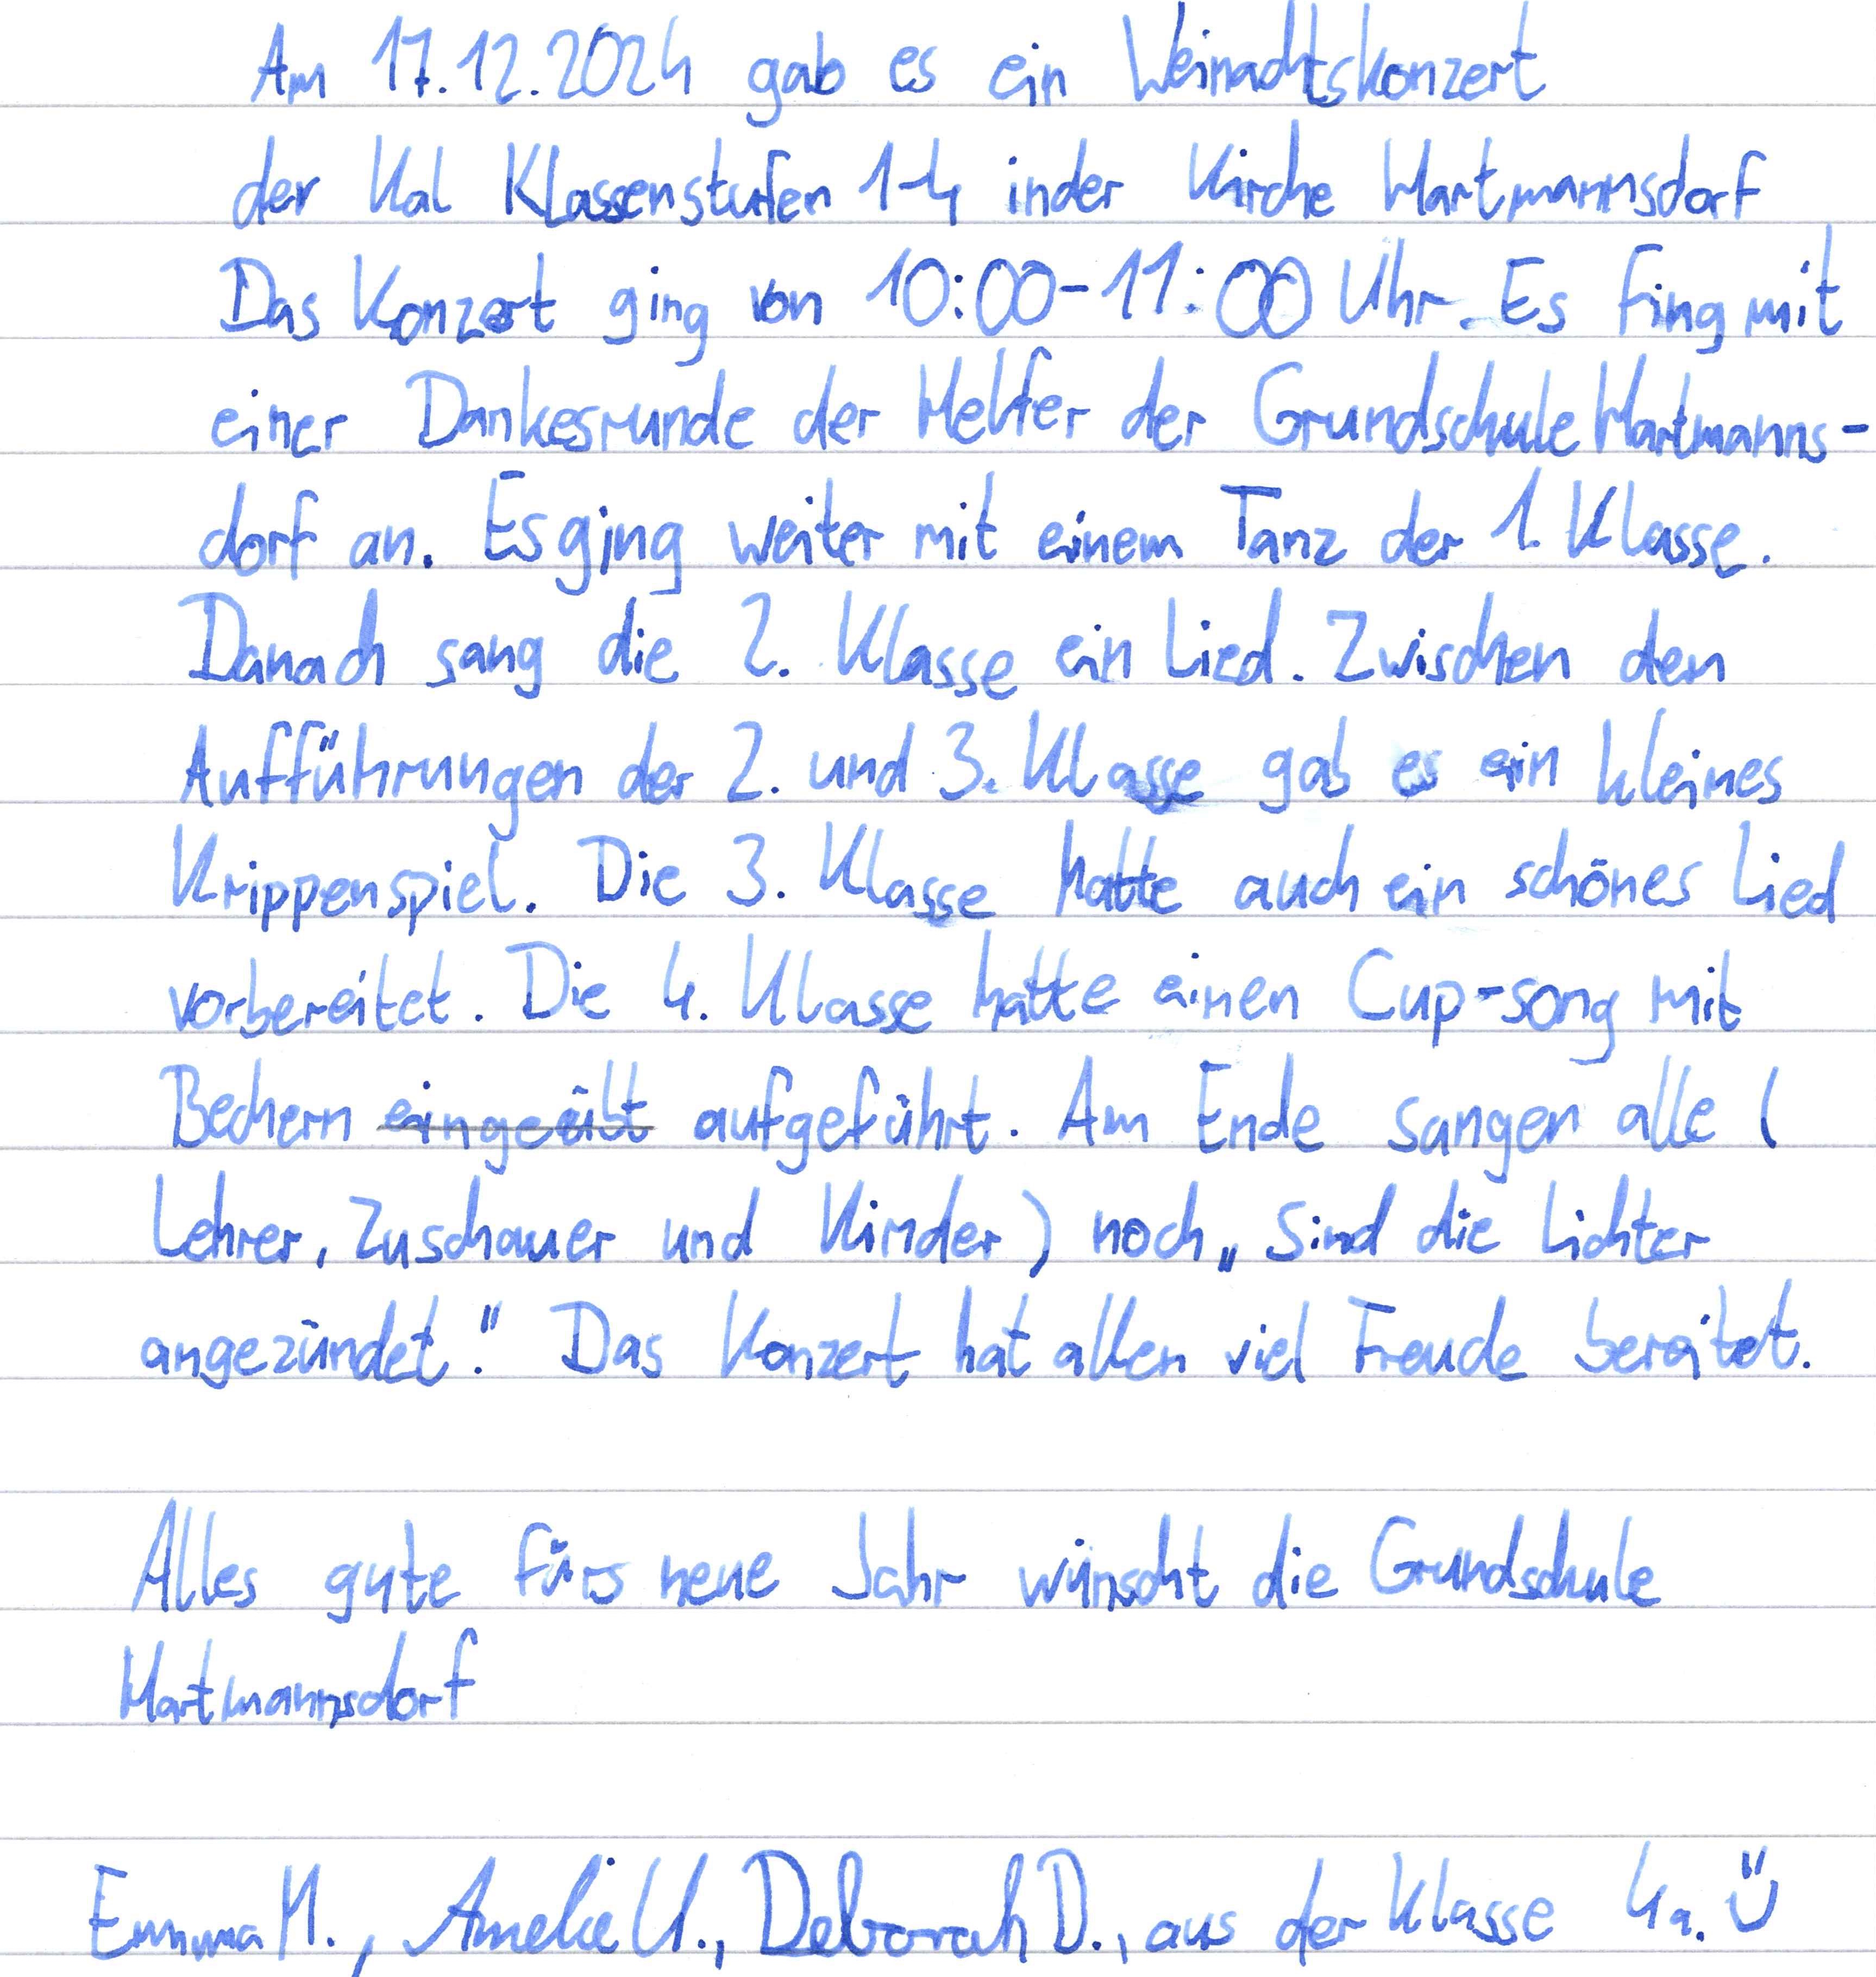 Am 17.12.2024 gab es ein Weinachtskonzert
der Kal Klassenstufen 1-4 inder Kirche Hartmannsdorf
Das Konzert ging von 10:00-11:00 Uhr. Es fing mit
einer Dankesrunde der Helfer der Grundschule Hartmanns-
dorf an. Es ging weiter mit einem Tanz der 1. Klasse.
Danach sang die 2. Klasse ein Lied. Zwischen den
Aufführungen der 2. und 3. Klasse gab es ein kleines
Krippenspiel. Die 3. Klasse hatte auch ein schönes Lied
vorbereitet. Die 4. Klasse hatte einen Cup-song mit
Bechern eingeübt aufgeführt. Am Ende sangen alle (
Lehrer, Zuschauer und Kinder) noch „Sind die Lichter
angezündet." Das Konzert hat allen viel Freude bereitet.
Alles gute fürs neue Jahr wünscht die Grundschule
Hartmannsdorf
Emma H., Amelie U., Deborah D., aus der Klasse 4a. Ü